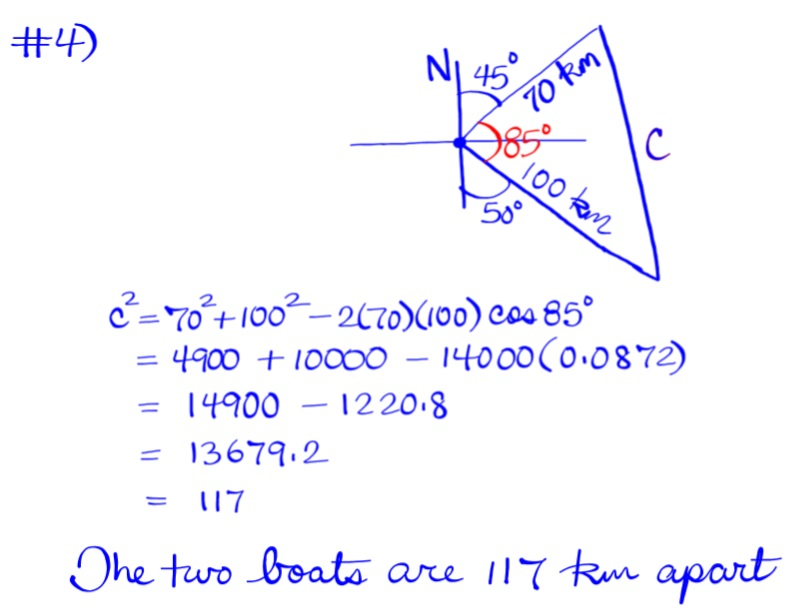 #4)
N 45°
70 km
85°
C
100 km
50°
c² = 70² + 100² - 2(70)(100) cos 85°
= 4900 + 10000 - 14000(0.0872)
= 14900 - 1220.8
= 13679.2
= 117
The two boats are 117 km apart